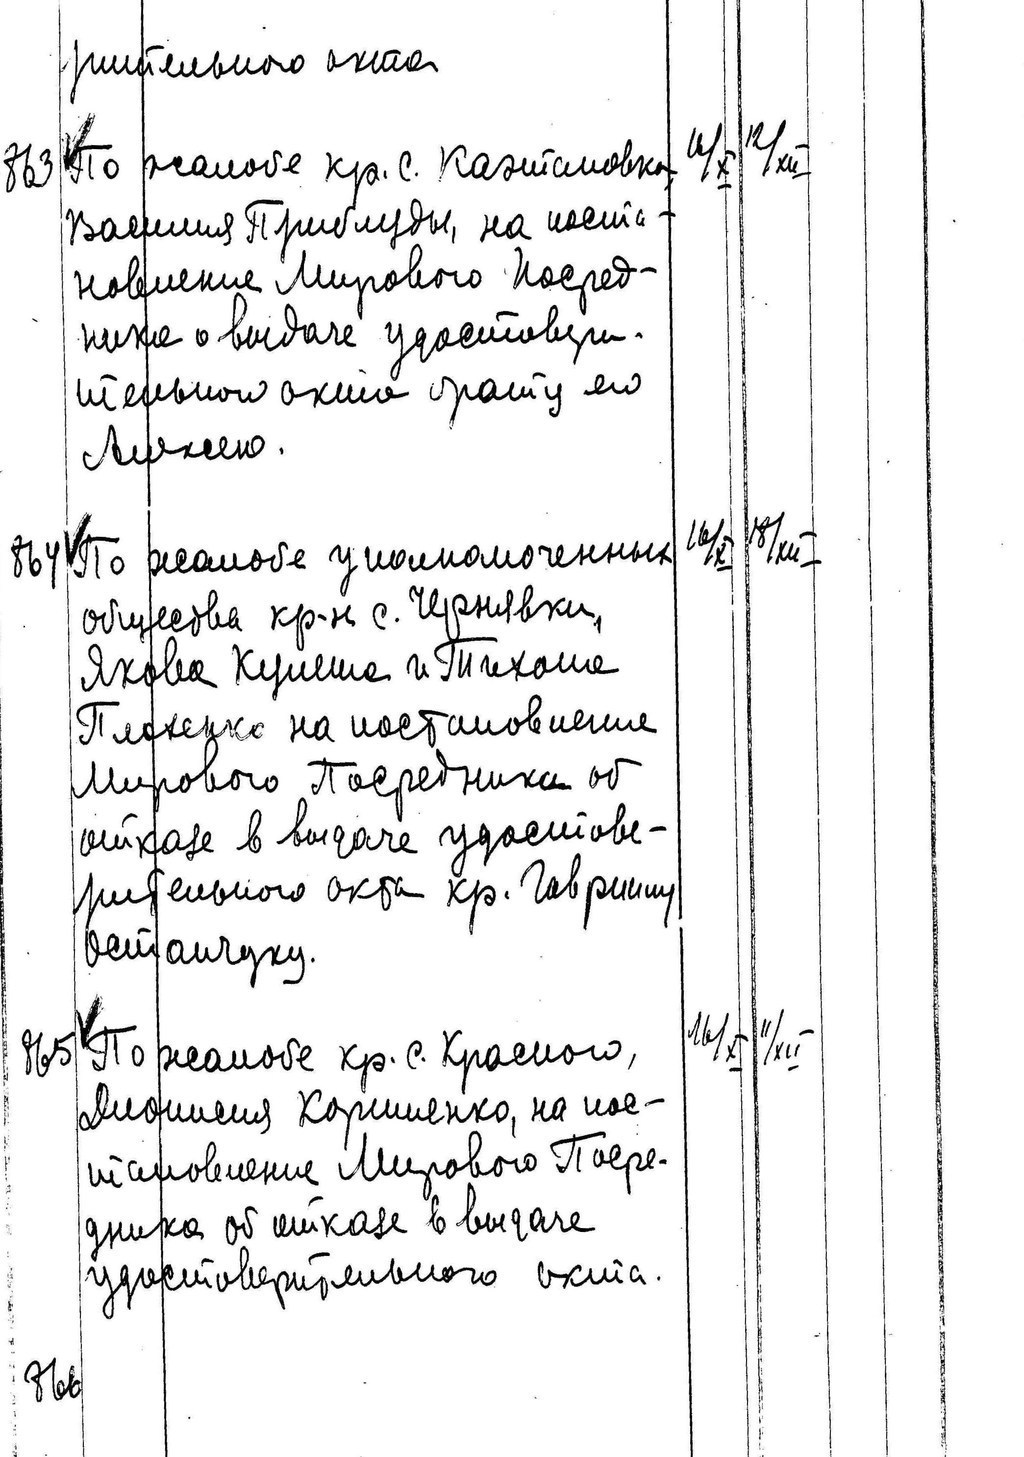 рительного акта
863 По жалобе кр. с. Каэтановка, 16/XI 12/XII
Василия Приблуды, на поста-
новление Мирового Посред-
ника о выдаче удостовери-
тельного акта брату его
Алексею.
864 По жалобе уполномоченных 16/XI 18/XII
общества кр-н с. Чернявки,
Якова Кулеша и Тихона
Плахенко на постановление
Мирового Посредника об
отказе в выдаче удостове-
рительного акта кр. Гавриилу
Остапчуку.
865 По жалобе кр. с. Красного, 16/XI 11/XII
Дионисия Корниленко, на пос-
тановление Мирового Посре-
дника об отказе в выдаче
удостоверительного акта.
866